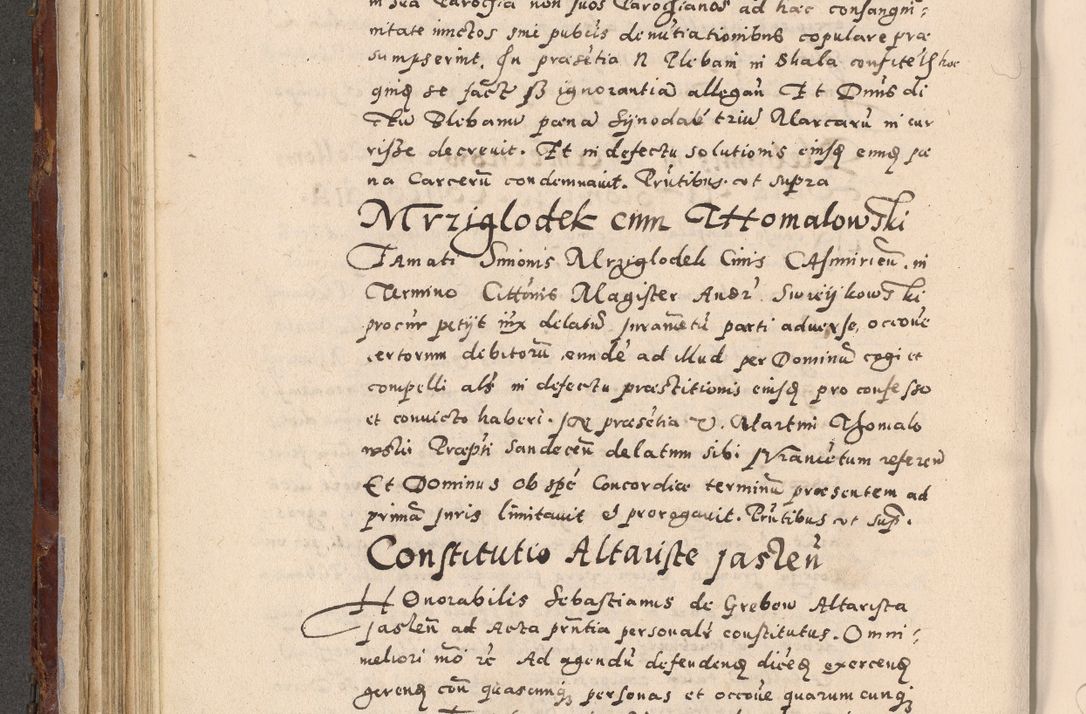 in sua Parochia non suos Parochianos ad hac consangui¬
nitate iunctos sine publicis denutiationibus copulare præ
sumpserint. In præsẽtia N Plebani in Skala confitẽtis hoc
quidẽ se factũ sz ignorantiã allegañ Et Dñus di
ctũ Plebanũ pœna Synodali triũ Marcarũ in cur
risse decreuit. Et in defectu solutionis eiusdẽ eundẽ pœ
na Carcerũ condemnauit. Prñtibus ut supra
Mrziglodek cum Thomalowski
Famati Simonis Mrziglodek Ciuis CAsimirieñ. in
Termino Citt̃onis Magister Andr: Swieijkowski
procur petijt iux delatũ Juramẽtũ parti aduersæ, occoñe
certorum debitorũ, eundẽ ad illud per Dominũ cogi et
compelli als in defectu præstitionis eiusdẽ pro confesso
et conuicto haberi. In præsẽtia V. Martini Thomalo
wski Præpti Sandeceñ delatum sibi JVramẽtum refereñ
Et Dominus ob spẽ Concordiæ terminũ præsentem ad
primã Juris limitauit et prorogauit. Prñtibus ut sup̃.
Constitutio Altaristæ Jasleñ
HOnorabilis Sebastianus de Grebow Altarista
Jasleñ ad Acta prñtia personalr constitutus. Omni¬
meliori mõ rc Ad agendũ defendendũ dicẽdũ exercendũ
gerendũ cõn quascunq personas et occoñe quarumcunq